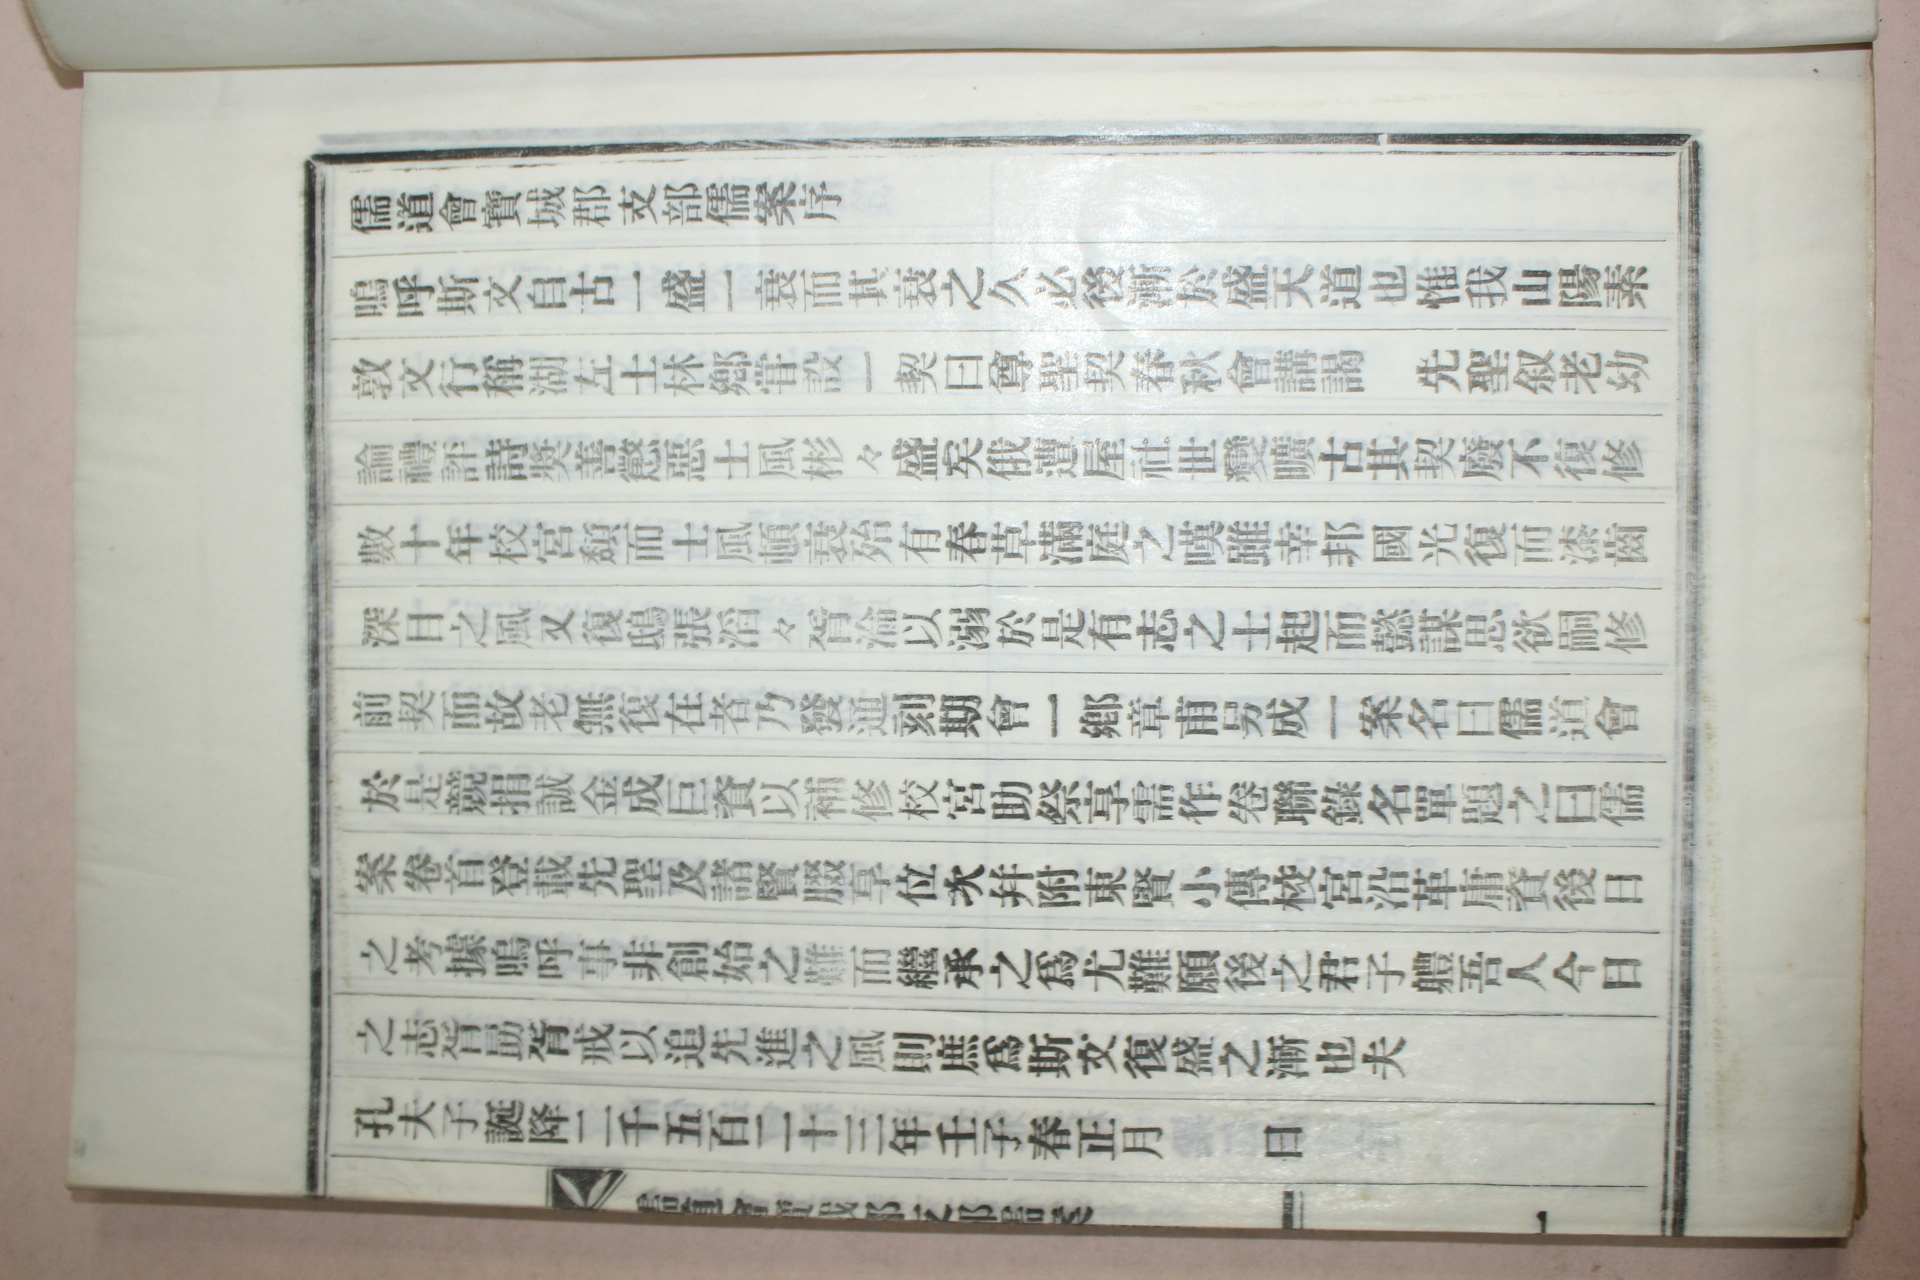 儒道會寶城郡支部儒案序
嗚呼斯文自古一盛一衰而其衰之久必後漸於盛天道也惟我山陽素
敦文行稱湖左士林鄉甞設一契曰尊聖契春秋會講謁 先聖叙老幼
論禮評詩獎善懲惡士風彬々盛矣俄遭屋社世變曠古其契廢不復修
數十年校宮頹而士風頓衰殆有春草滿庭之嘆雖幸邦國光復而漆齒
深目之風又復鴟張滔々胥淪以溺於是有志之士起而懿謀思欲嗣修
前契而故老無復在者乃發通刻期會一鄉章甫另成一案名曰儒道會
於是競捐誠金成巨資以補修校宮助祭享需作卷聯錄名單題之曰儒
案卷首登載先聖及諸賢腏享位次并附東賢小傳校宮沿革庸資後日
之考據嗚呼事非創始之難而繼承之爲尤難願後之君子軆吾人今日
之志胥勖胥戒以追先進之風則庶爲斯文復盛之漸也夫
孔夫子誕降二千五百二十三年壬子春正月 日
儒道會寶城郡支部儒案 一